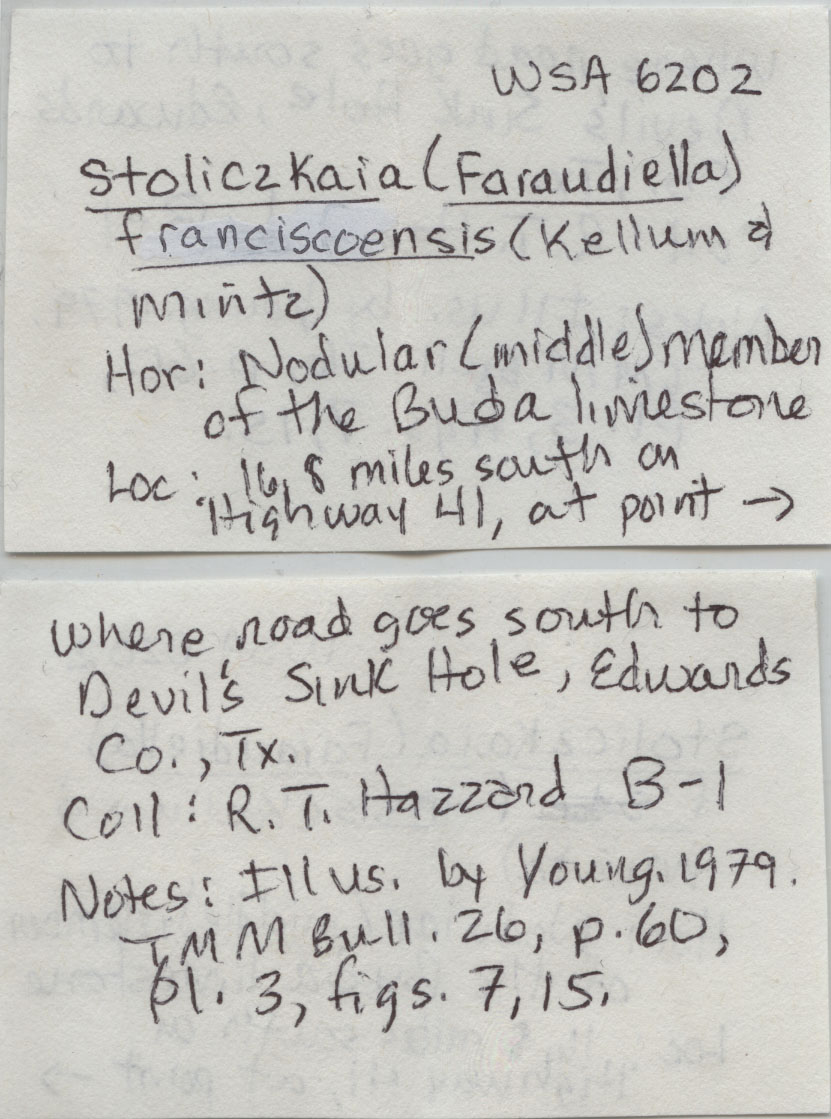 WSA 6202
Stoliczkaia (Faraudiella)
franciscoensis (Kellum &
Mintz)
Hor: Nodular (middle) member
of the Buda limestone
Loc: 16.8 miles south on
Highway 41, at point →
where road goes south to
Devil's Sink Hole, Edwards
Co., Tx.
Coll: R. T. Hazzard B-1
Notes: Illus. by Young. 1979.
TMM Bull. 26, p. 60,
pl. 3, figs. 7, 15.